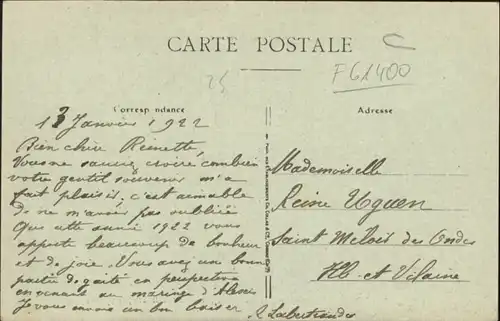 CARTE POSTALE
F61400
25
Correspondance
Adresse
13 Janvier 1922
Bien chère Reinette
Vous ne sauriez croire combien
votre gentil souvenir m'a
fait plaisir, c'est aimable
de ne m'avoir pas oubliée
Que cette année 1922 vous
apporte beaucoup de bonheur
et de joie. Vous avez un bonne
partie de gaité en perspective
en venant au mariage d'Alexis
Je vous envoie un bon baiser
Mademoiselle
Reine Uguen
Saint Méloir des Ondes
Ille et Vilaine